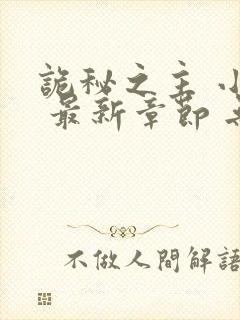 詭秘之主
最新章節
不做人間解語